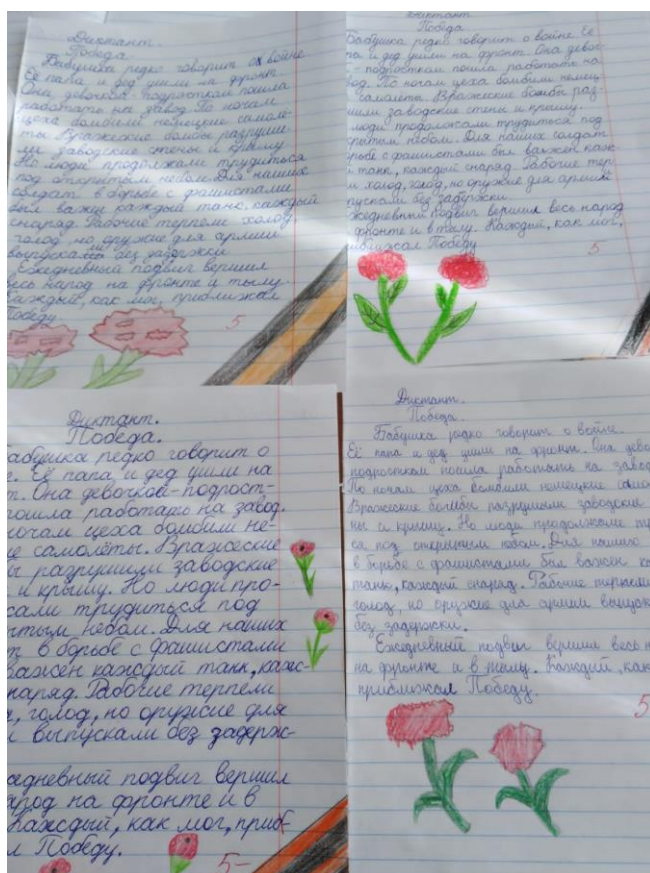 Диктант.
Победа.
Бабушка редко говорит о войне
Её папа и дед ушли на фронт.
Она девочкой-подростком пошла
работать на завод. По ночам
цеха бомбили немецкие самолё-
ты. Вражеские бомбы разруши-
ли заводские стены и крышу.
Но люди продолжали трудиться
под открытым небом. Для наших
солдат в борьбе с фашистами
был важен каждый танк, каждый
снаряд. Рабочие терпели холод,
голод, но оружие для армии
выпускали без задержки
Ежедневный подвиг вершил
весь народ на фронте и тылу.
Каждый, как мог, приближал
Победу.
5
Диктант
Победа.
Бабушка редко говорит о войне. Её
па и дед ушли на фронт. Она девоч-
- подростком пошла работать на
вод. По ночам цеха бомбили немец
самолёты. Вражеские бомбы раз-
шили заводские стены и крышу.
люди продолжали трудиться под
крытым небом. Для наших солдат
орьбе с фашистами был важен каж-
й танк, каждый снаряд. Рабочие тер-
и холод, голод, но оружие для армии
пускали без задержки.
жедневный подвиг вершил весь народ
фронте и в тылу. Каждый, как мог,
иближал Победу
5
Диктант.
Победа.
Бабушка редко говорит о
е. Её папа и дед ушли на
т. Она девочкой-подрост-
пошла работать на завод.
ночам цеха бомбили не-
ие самолёты. Вражеские
ы разрушили заводские
и крышу. Но люди про-
жали трудиться под
рытым небом. Для наших
т в борьбе с фашистами
важен каждый танк, каж-
наряд. Рабочие терпели
д, голод, но оружие для
и выпускали без задерж-
седневный подвиг вершил
народ на фронте и в
Каждый, как мог, приб-
л Победу.
5-
Диктант.
Победа.
Бабушка редко говорит о войне.
Её папа и дед ушли на фронт. Она дево
подростком пошла работать на завод
По ночам цеха бомбили немецкие само
Вражеские бомбы разрушили заводские
ны и крышу. Но люди продолжали тру
ся под открытым небом. Для наших
в борьбе с фашистами был важен ка
танк, каждый снаряд. Рабочие терпели
голод, но оружие для армии выпуск
без задержки.
Ежедневный подвиг вершил весь н
на фронте и в тылу. Каждый, как
приближал Победу.
5